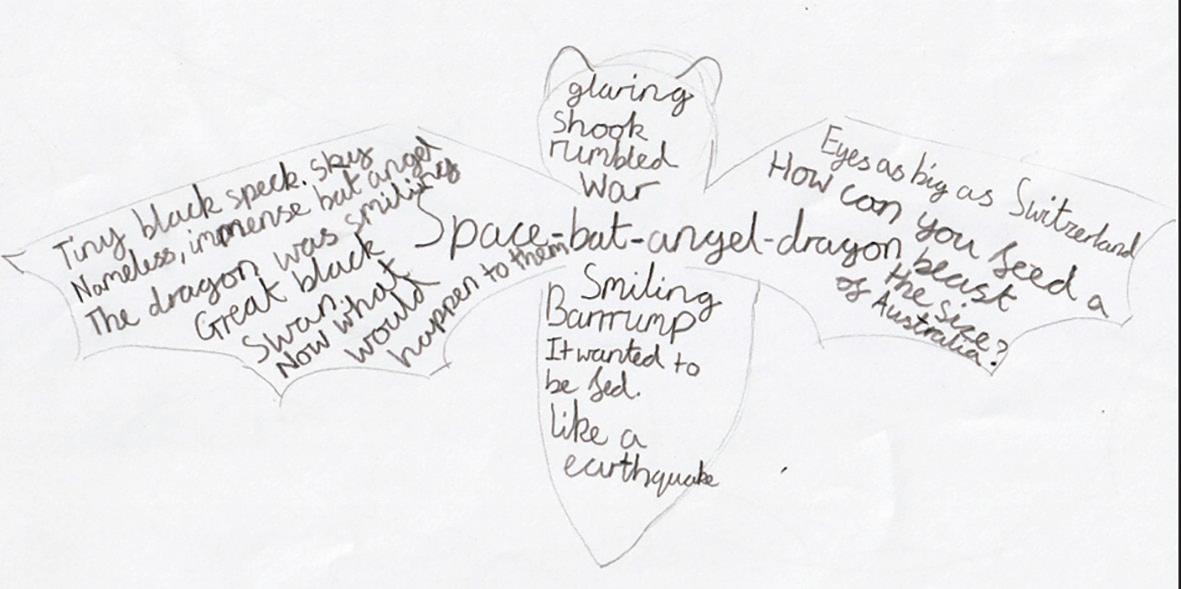 glaring
Shook
rumbled
War
Tiny black speck. sky
Nameless, immense bat angel
The dragon was smiling
Great black
Swan.
Now what
would
happen to them
Space-bat-angel-dragon
Eyes as big as Switzerland
How can you feed a
beast
the size
of Australia?
Smiling
Barrrump
It wanted to
be fed.
like a
earthquake